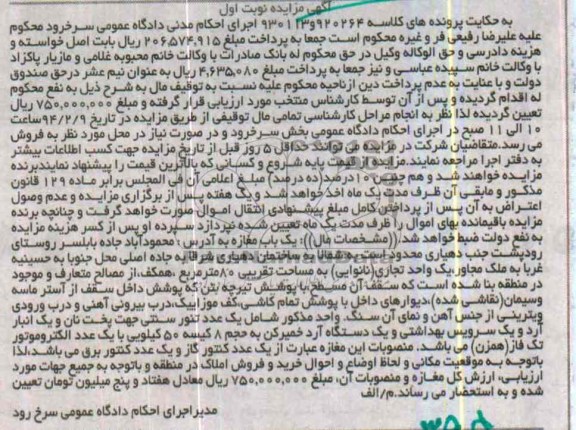 آگهی مزایده نوبت اول
به حکایت پرونده های کلاسه ۹۲۰۲۶۴و۹۳۰۱۲۳ اجرای احکام مدنی دادگاه عمومی سرخرود محکوم
علیه علیرضا رفیعی فر و غیره محکوم است جمعا به پرداخت مبلغ ۲۰۶,۵۷۴,۹۱۵ ریال بابت اصل خواسته و
هزینه دادرسی و حق الوکاله وکیل در حق محکوم له بانک صادرات با وکالت خانم محبوبه غلامی و مازیار پاکزاد
با وکالت خانم سپیده عباسی و نیز جمعا به پرداخت مبلغ ۴,۶۳۵,۰۸۰ ریال به عنوان نیم عشر درحق صندوق
دولت و با عنایت به عدم پرداخت دین ازناحیه محکوم علیه نسبت به توقیف مال به شرح ذیل به نفع محکوم
له اقدام گردیده و پس از آن توسط کارشناس منتخب مورد ارزیابی قرار گرفته و مبلغ ۷۵۰,۰۰۰,۰۰۰ ریال
تعیین گردیده لذا نظر به انجام مراحل کارشناسی تمامی مال توقیفی از طریق مزایده در تاریخ ۹۴/۲/۹ساعت
۱۰ الی ۱۱ صبح در اجرای احکام دادگاه عمومی بخش سرخرود و در صورت نیاز در محل مورد نظر به فروش
می رسد.متقاضیان شرکت در مزایده می توانند حداقل ۵ روز قبل از تاریخ مزایده جهت کسب اطلاعات بیشتر
به دفتر اجرا مراجعه نمایند.مزایده از قیمت پایه شروع و کسانی که بالاترین قیمت را پیشنهاد نمایندبرنده
مزایده خواهند شد و هم چنین ۱۰درصد(ده درصد) مبلغ اعلامی آن فی المجلس برابر ماده ۱۲۹ قانون
مذکور و مابقی آن ظرف مدت یک ماه اخذ خواهد شد و یک هفته پس از برگزاری مزایده و عدم وصول
اعتراض به آن پس از پرداختن کامل مبلغ پیشنهادی انتقال اموال صورت خواهد گرفت و چنانچه برنده
مزایده باقیمانده بهای اموال را ظرف مدت یک ماه تعیین شده نپردازد سپرده او پس از کسر هزینه مزایده
به نفع دولت ضبط خواهد شد.((مشخصات مال)): یک باب مغازه به آدرس : محمودآباد جاده بابلسر روستای
رودپشت جنب دهیاری محدود است به شمالا به ساختمان دهیاری شرقا به جاده اصلی محل جنوبا به حسینیه
غربا به ملک مجاور.یک واحد تجاری(نانوایی) به مساحت تقریبی ۸۰مترمربع ،همکف،از مصالح متعارف و موجود
در منطقه بنا شده است که سقف آن مسطح با پوشش تیرچه بتن که پوشش داخل سقف از آستر ماسه
وسیمان(نقاشی شده)،دیوارهای داخل با پوشش تمام کاشی،کف موزاییک،درب بیرونی آهنی و درب ورودی
ویترینی از جنس آهن و نمای آن سنگ. واحد مذکور شامل یک عدد تنور سنتی جهت پخت نان و یک انبار
آرد و یک سرویس بهداشتی و یک دستگاه آرد خمیرکن به حجم ۸ کیسه ۵۰ کیلویی با یک عدد الکتروموتور
تک فاز(همزن) می باشد. منصوبات این مغازه عبارت از یک عدد کنتور گاز و یک عدد کنتور برق می باشد،لذا
باتوجه به موقعیت مکانی و لحاظ اوضاع و احوال خرید و فروش املاک در منطقه و باتوجه به جمیع جهات مورد
ارزیابی، ارزش کل مغازه و منصوبات آن، مبلغ ۷۵۰,۰۰۰,۰۰۰ ریال معادل هفتاد و پنج میلیون تومان تعیین
شده و به استحضار می رساند.م/الف
مدیراجرای احکام دادگاه عمومی سرخ رود